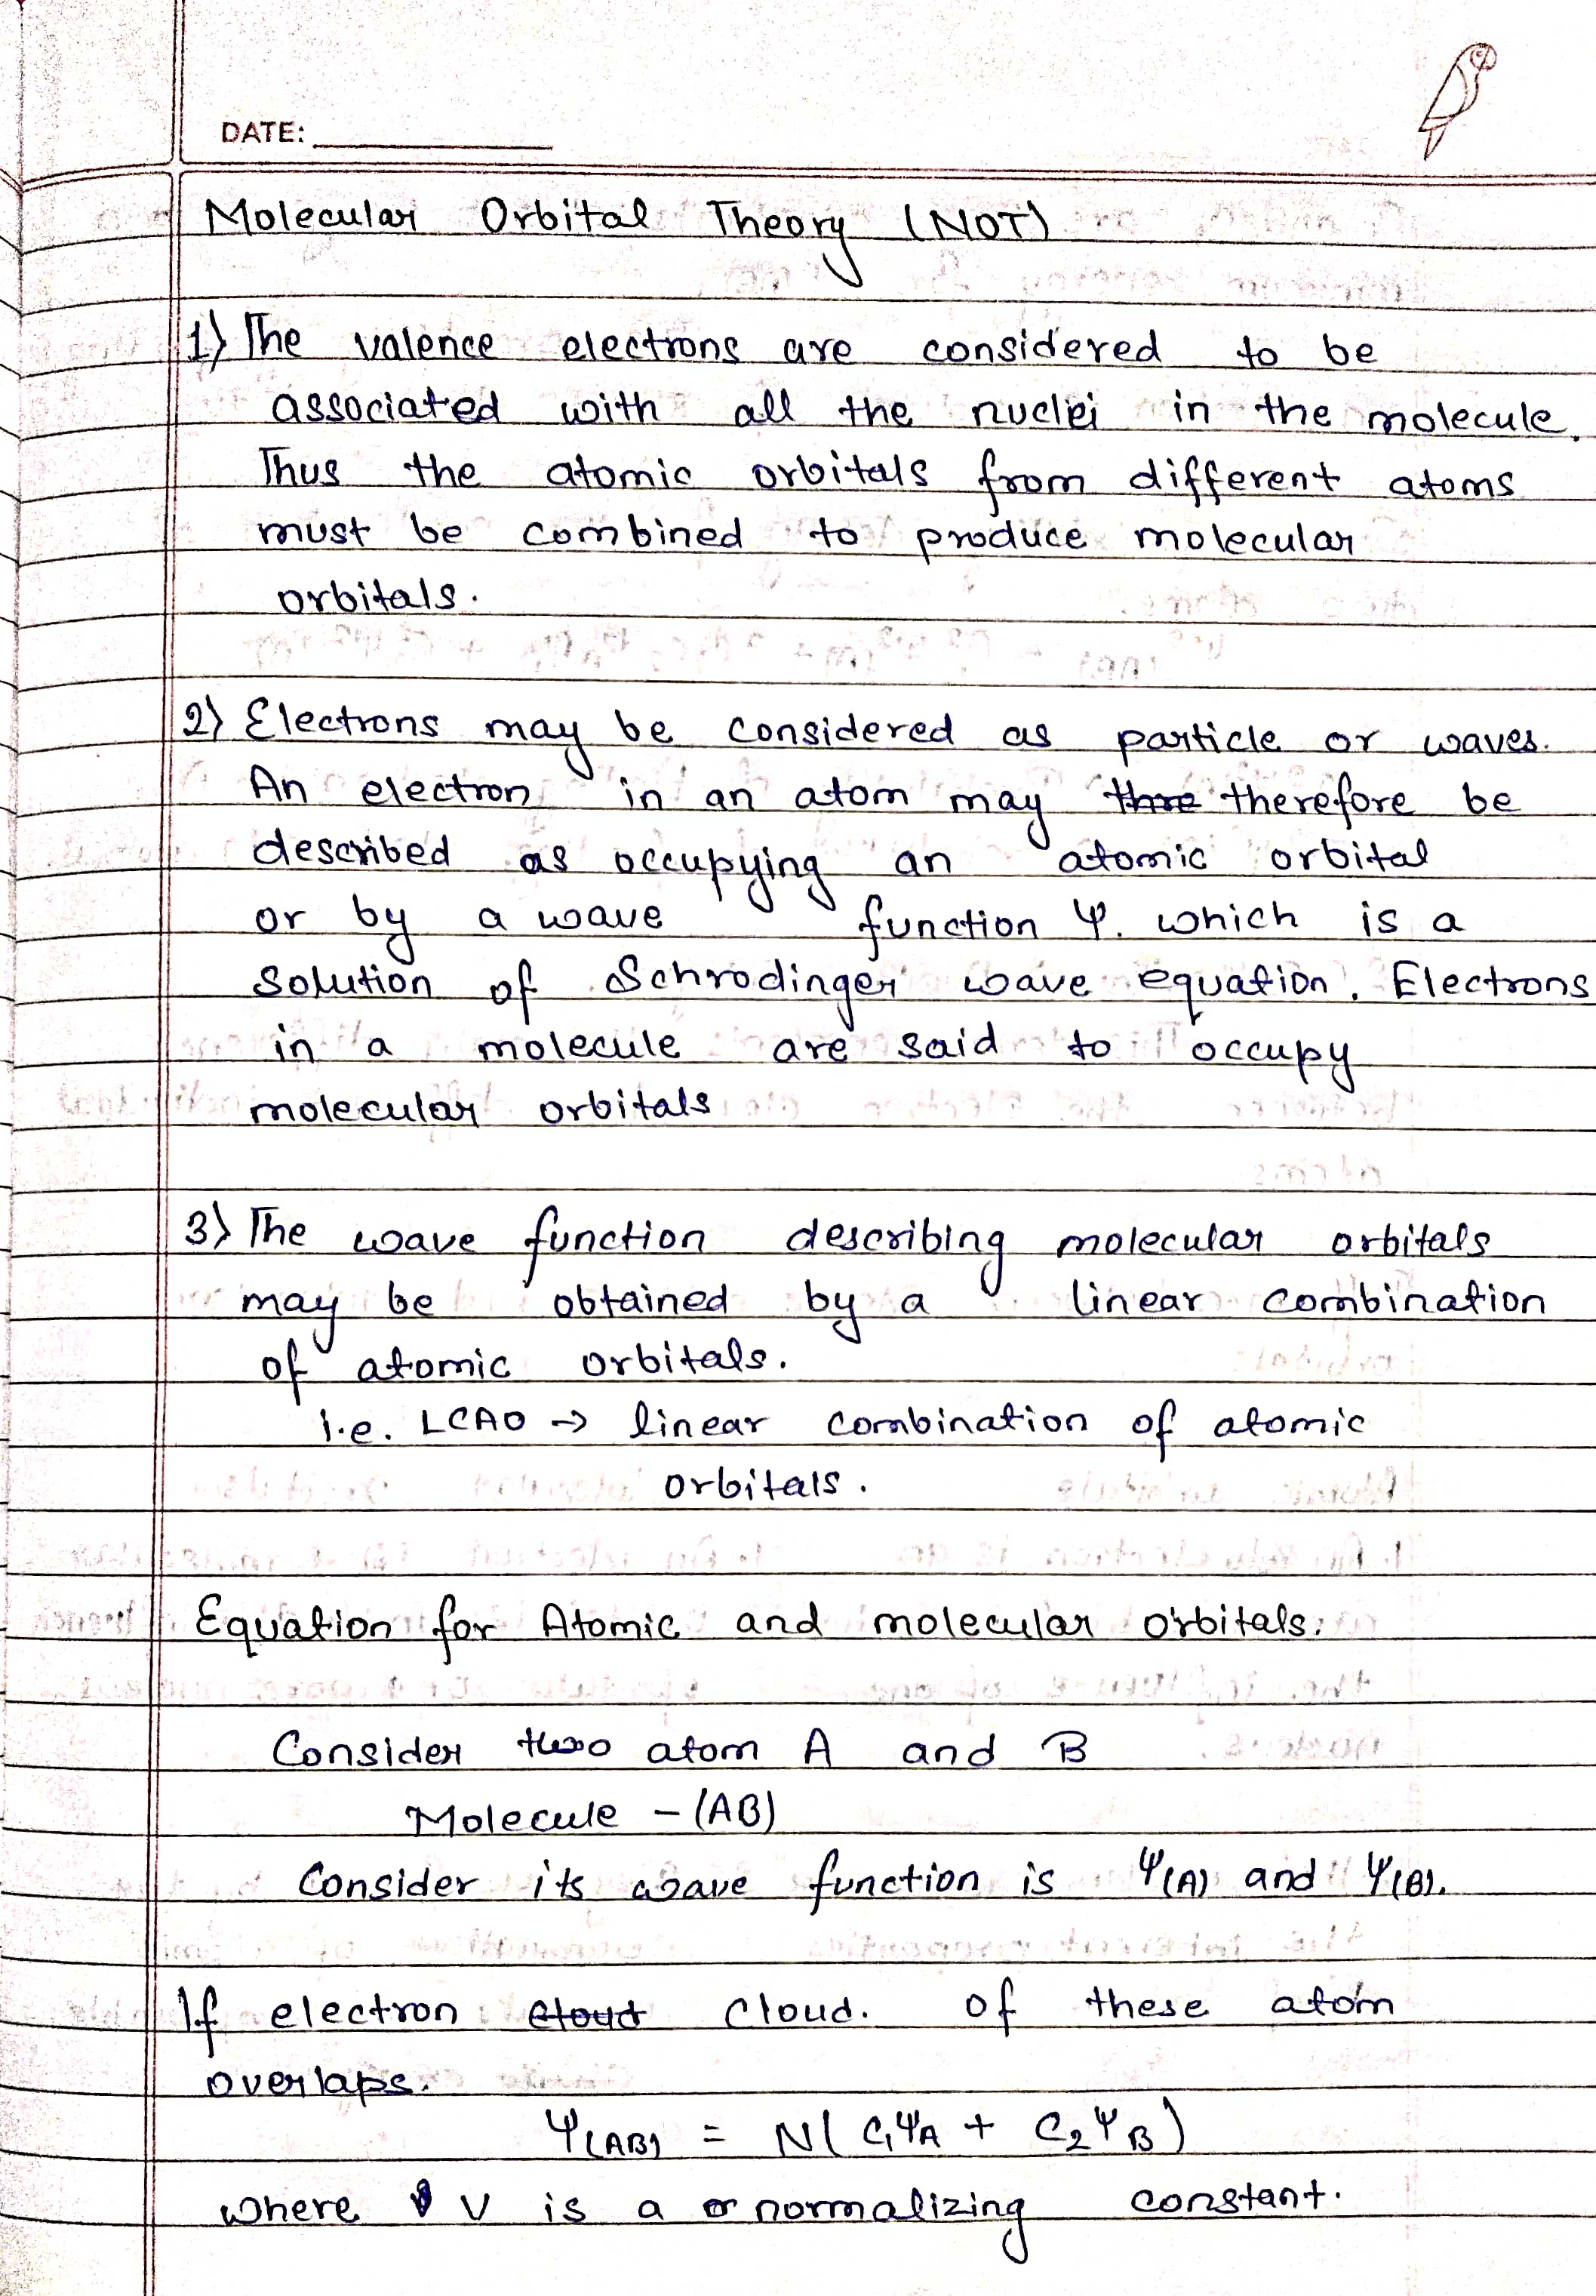 DATE:
Molecular Orbital Theory (NOT)
1) The valence electrons are considered to be
associated with all the nuclei in the molecule.
Thus the atomic orbitals from different atoms
must be combined to produce molecular
orbitals.
2) Electrons may be considered as particle or waves.
An electron in an atom may therefore be
described as occupying an atomic orbital
or by a wave function Ψ. which is a
solution of Schrodinger wave equation. Electrons
in a molecule are said to occupy
molecular orbitals
3) The wave function describing molecular orbitals
may be obtained by a linear combination
of atomic orbitals.
i.e. LCAO → linear combination of atomic
orbitals.
Equation for Atomic and molecular orbitals:
Consider two atom A and B
Molecule - (AB)
Consider its wave function is Ψ(A) and Ψ(B).
If electron cloud cloud. of these atom
overlaps.
Ψ(AB) = N( C₁ΨA + C₂ΨB)
where V is a normalizing constant.